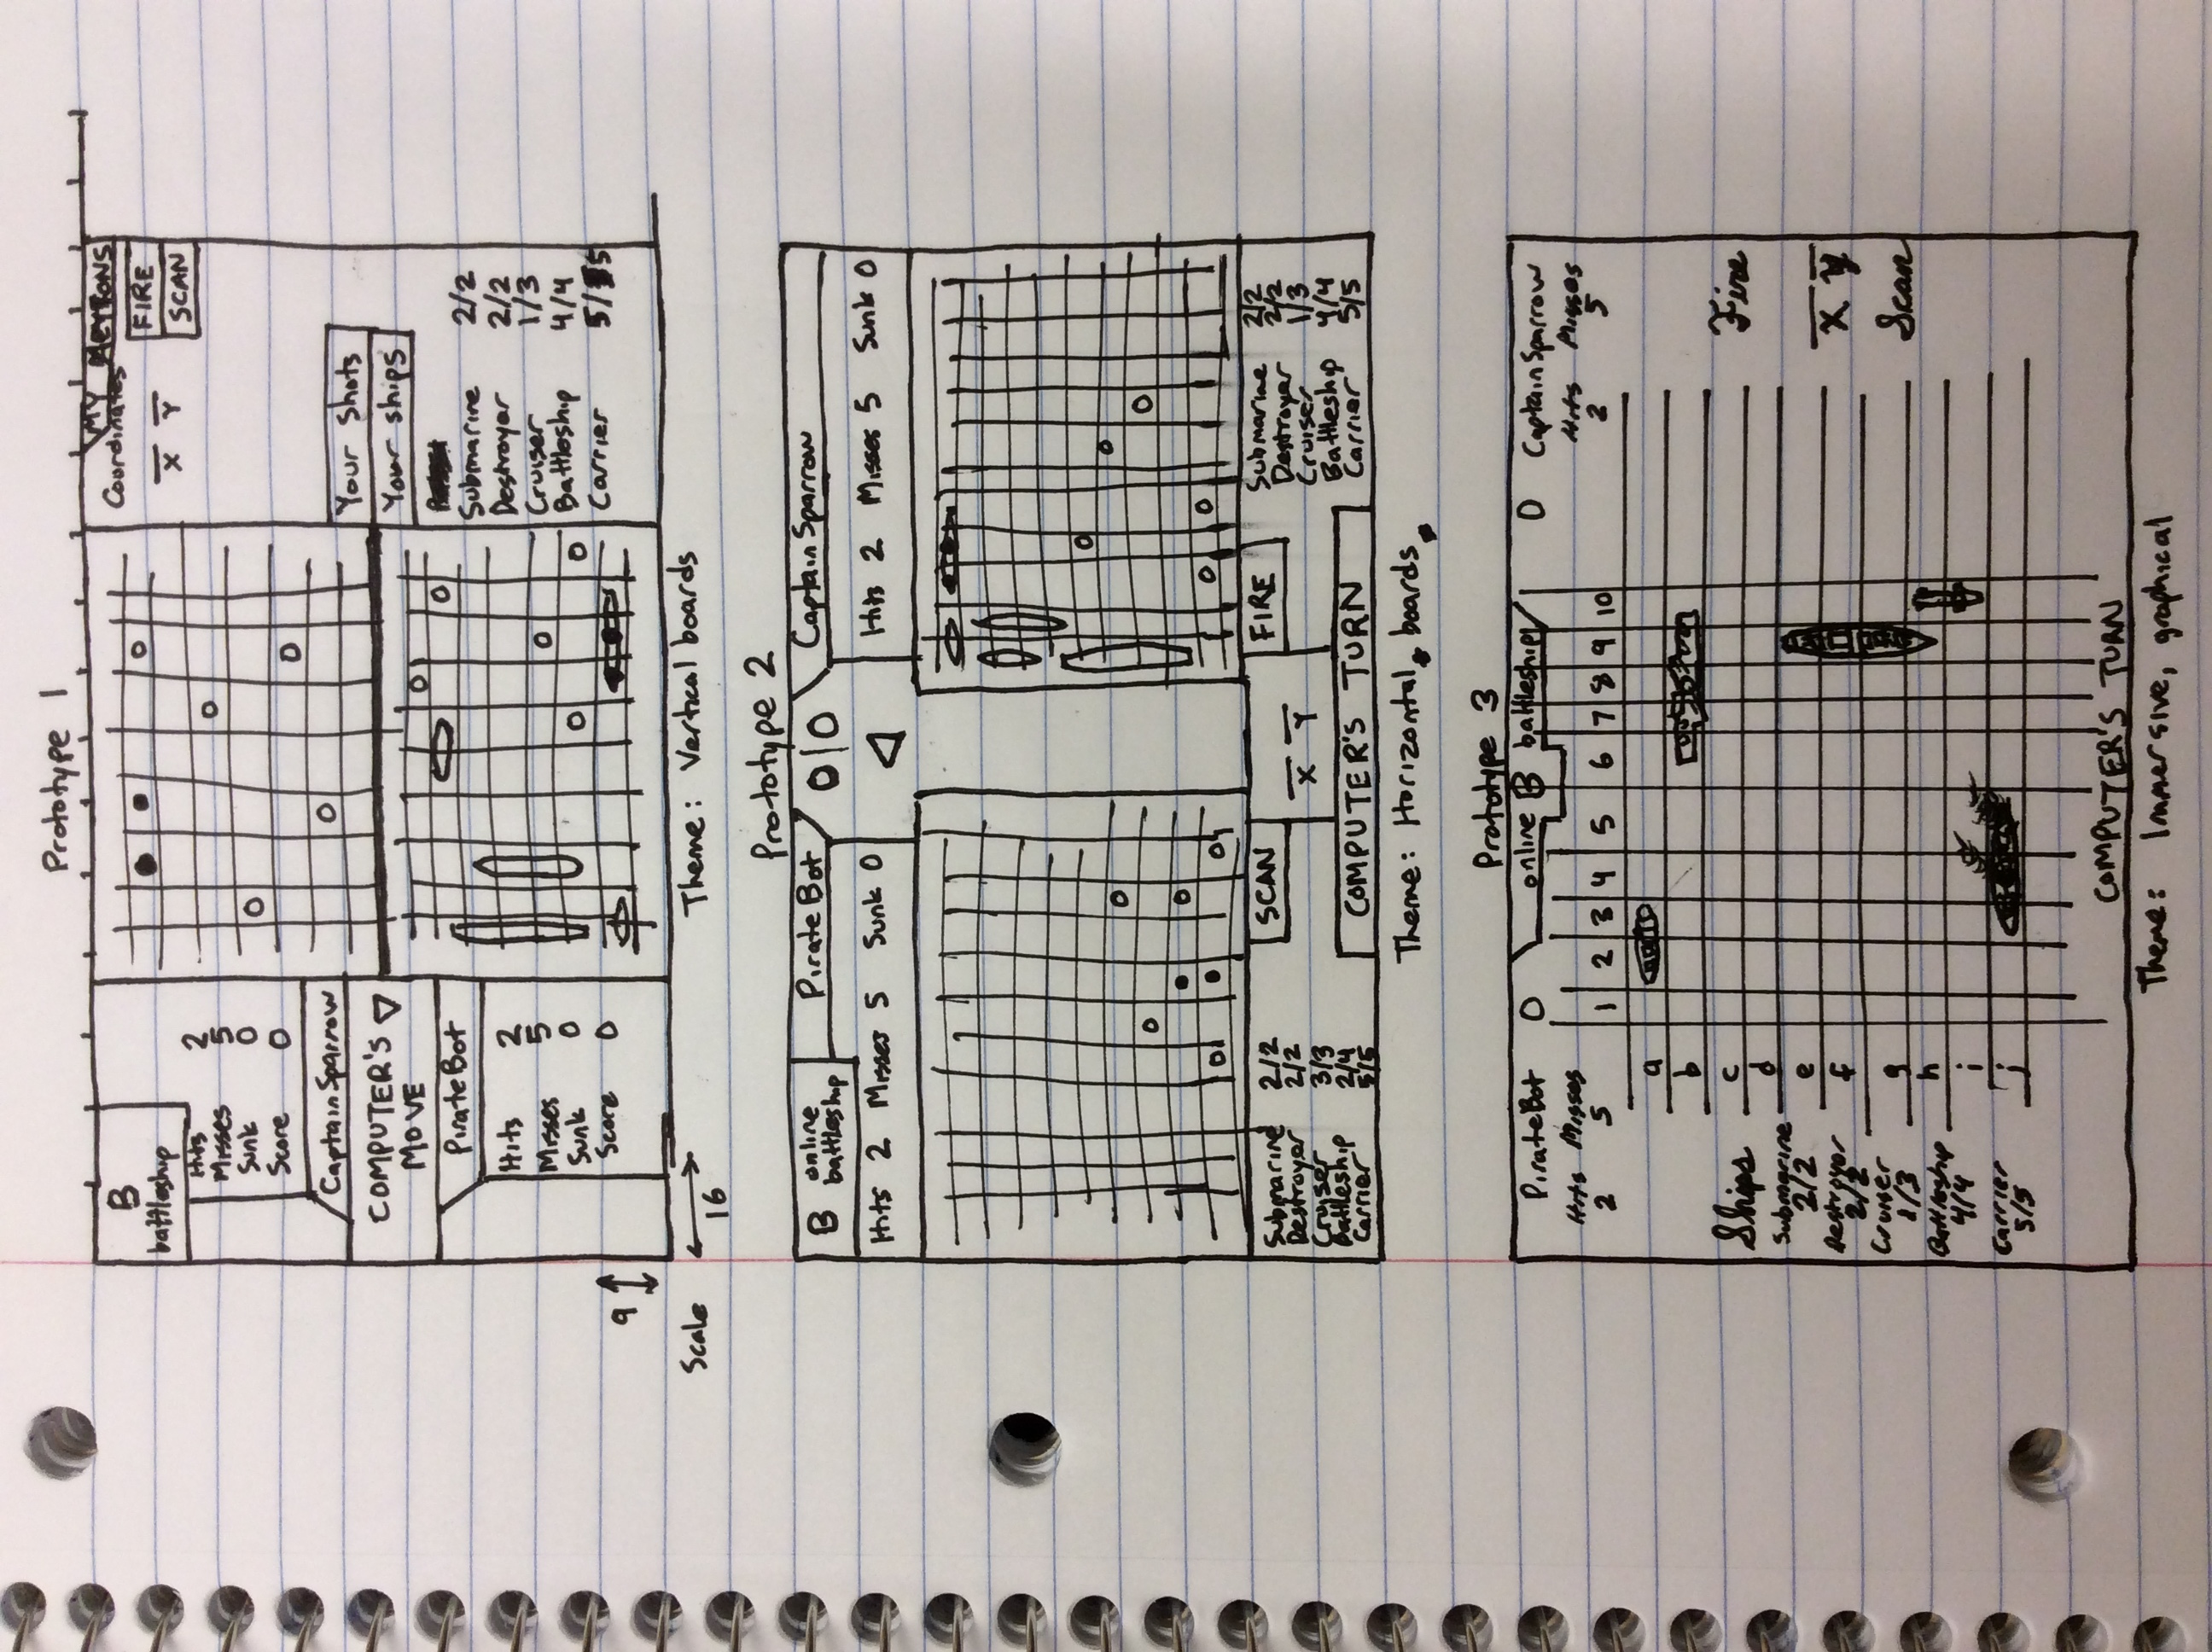 Prototype 1
B
battleship
Hits 2
Misses 5
Sunk 0
Score 0
Captain Sparrow
COMPUTER'S
MOVE
PirateBot
Hits 2
Misses 5
Sunk 0
Score 0
MY
Coordinates
X Y
FIRE
SCAN
Your Shots
Your ships
Submarine 2/2
Destroyer 2/2
Cruiser 1/3
Battleship 4/4
Carrier 5/5
9
Scale
16
Theme: Vertical boards
Prototype 2
B online
battleship
PirateBot
0|0
Captain Sparrow
Hits 2 Misses 5 Sunk 0
Hits 2 Misses 5 Sunk 0
Submarine 2/2
Destroyer 2/2
Cruiser 3/3
Battleship 2/4
Carrier 5/5
SCAN
X Y
FIRE
COMPUTER'S TURN
Submarine 2/2
Destroyer 2/2
Cruiser 1/3
Battleship 4/4
Carrier 5/5
Theme: Horizontal boards
Prototype 3
PirateBot 0
online B battleship
0 Captain Sparrow
Hits Misses
2 5
Hits Misses
2 5
1 2 3 4 5 6 7 8 9 10
a
b
c
d
e
f
g
h
i
j
Ships
Submarine
2/2
Destroyer
2/2
Cruiser
1/3
Battleship
4/4
Carrier
5/5
Fire
X Y
Scan
COMPUTER'S TURN
Theme: Immersive, graphical